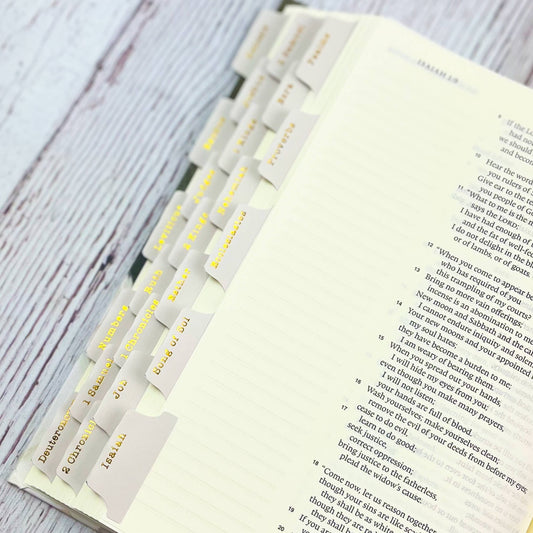 Psalms
Ezra
Proverbs
Nehemiah
Ecclesiastes
Leviticus
2 Kings
Esther
Song of Sol
Numbers
Ruth
1 Chronicles
Job
Deuteronomy
1 Samuel
2 Chronicles
Isaiah
ISAIAH 1:9
9 If the
had no
we should
and becom
10 Hear the word
you rulers of
Give ear to the te
you people of Go
11 "What to me is the m
says the LORD;
I have had enough of
and the fat of well-fe
I do not delight in the bl
or of lambs, or of goats.
12 "When you come to appear be
who has required of you
this trampling of my courts?
13 Bring no more vain offerings;
incense is an abomination to me
New moon and Sabbath and the ca
I cannot endure iniquity and solem
14 Your new moons and your appointed
my soul hates;
they have become a burden to me;
I am weary of bearing them.
15 When you spread out your hands,
I will hide my eyes from you;
even though you make many prayers,
I will not listen;
your hands are full of blood.
16 Wash yourselves; make yourselves clean;
remove the evil of your deeds from before my eyes;
cease to do evil,
17 learn to do good;
seek justice,
correct oppression;
bring justice to the fatherless,
plead the widow's cause.
18 "Come now, let us reason together
though your sins are like scar
they shall be as white
though they are
19 If you are
20